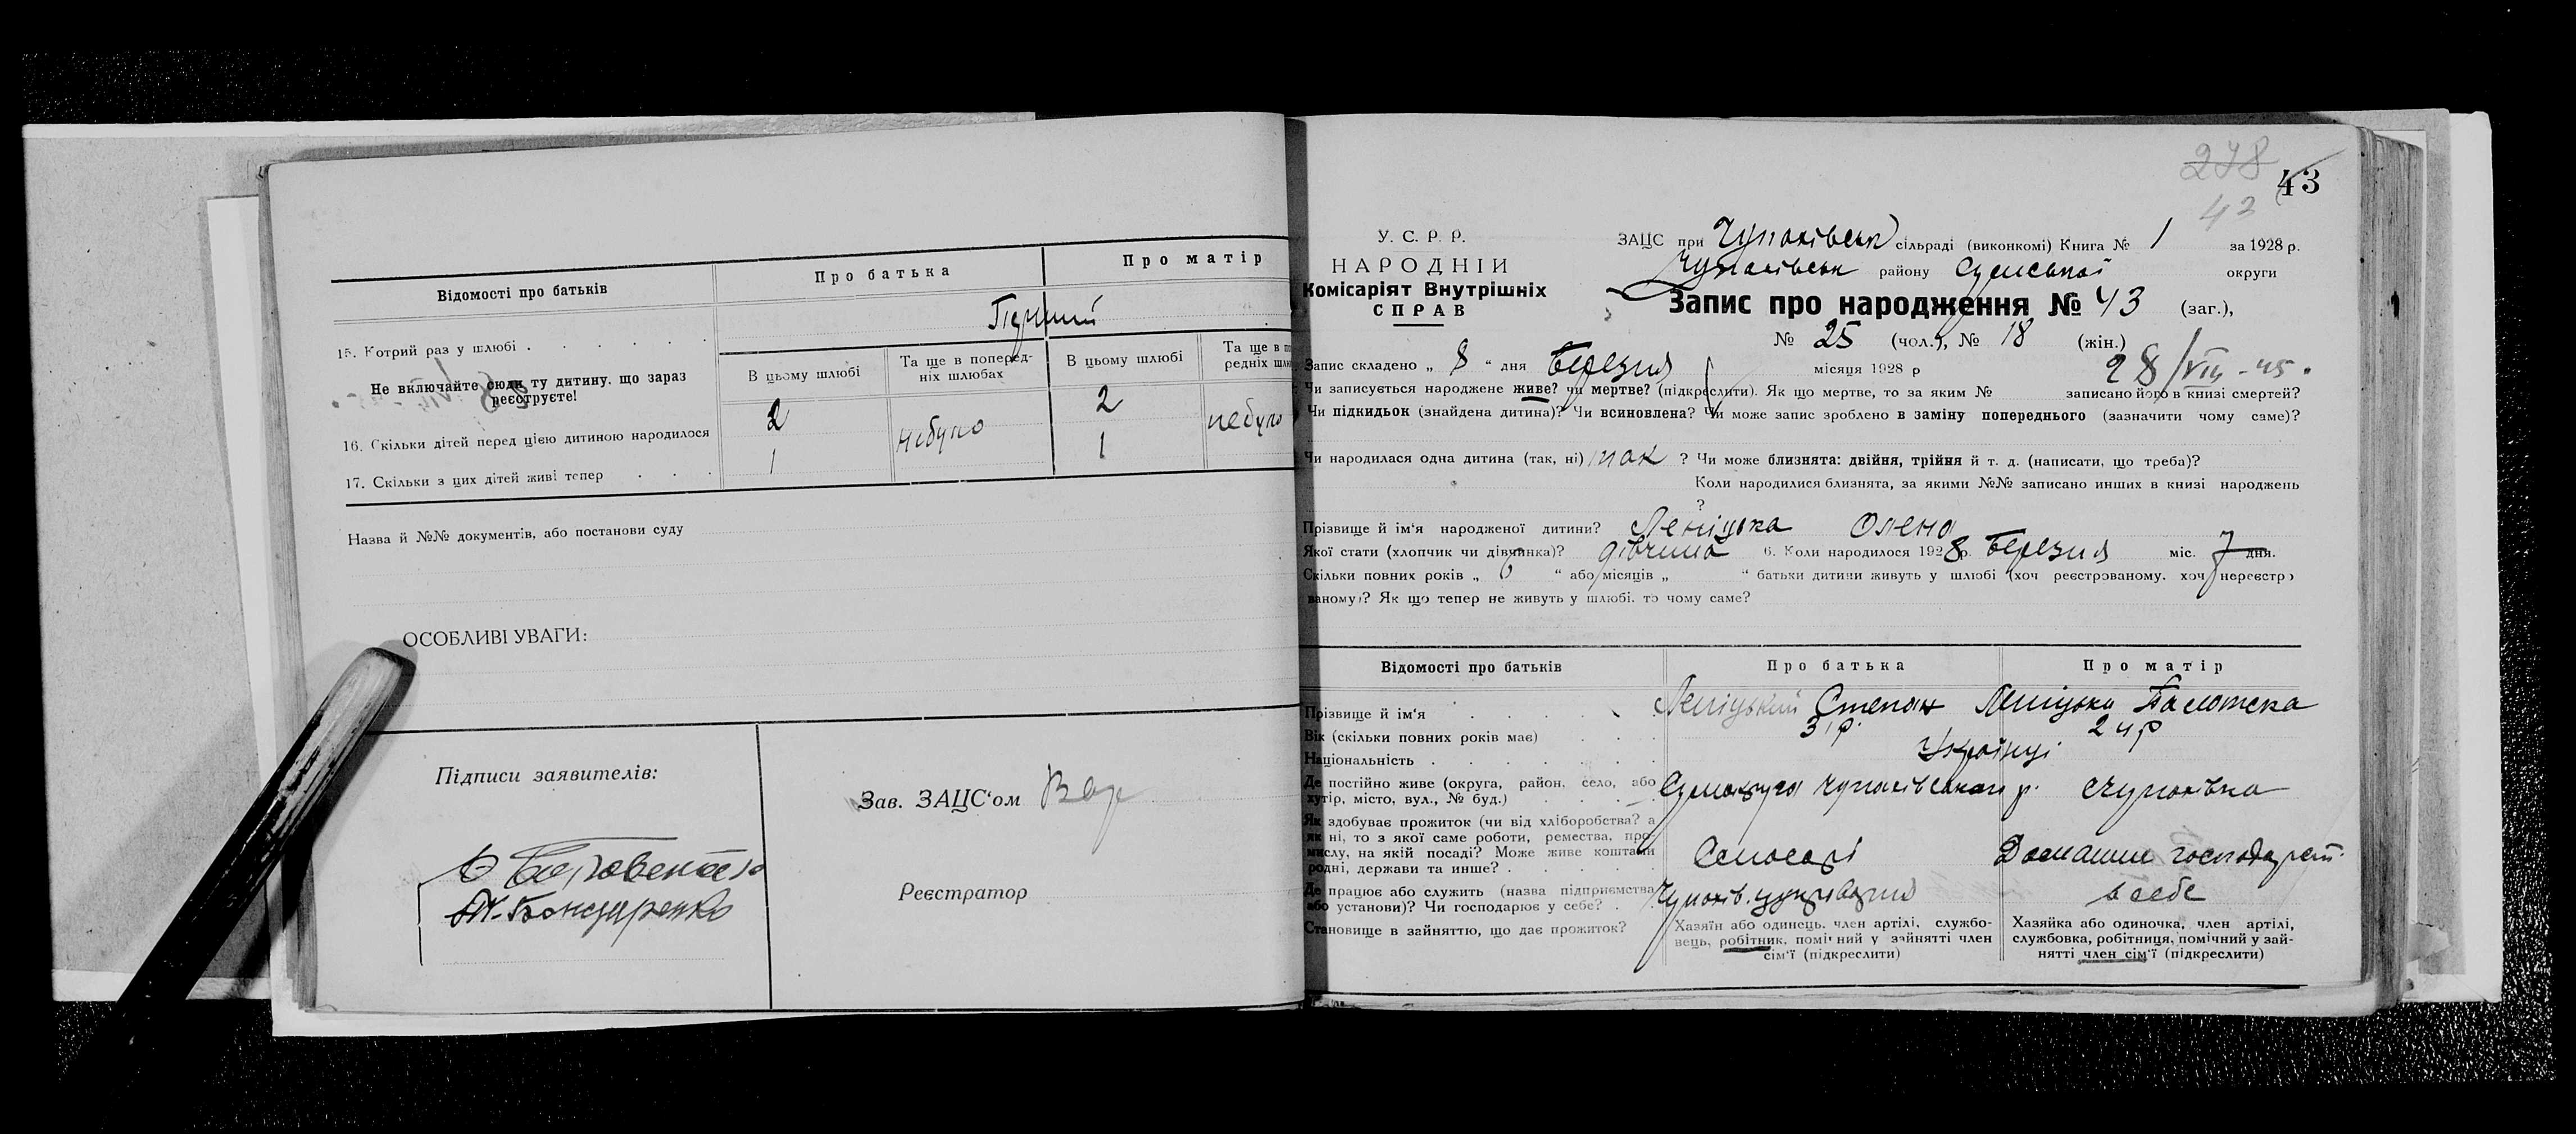 Відомості про батьків
Про батька
Про матір
15. Котрий раз у шлюбі
Не включайте сюди ту дитину, що зараз реєструєте!
В цьому шлюбі
Та ще в поперед-
ніх шлюбах
В цьому шлюбі
Та ще в по
редніх шлю
16. Скільки дітей перед цією дитиною народилося
2
небуло
2
небуло
17. Скільки з цих дітей живі тепер
1
1
Назва й №№ документів, або постанови суду
ОСОБЛИВІ УВАГИ:
Підписи заявителів:
Бондаренко
Зав. ЗАЦС'ом
Реєстратор
278
43
42
У. С. Р. Р.
НАРОДНІЙ
Комісаріят Внутрішніх
СПРАВ
ЗАЦС при Чупахівськ сільраді (виконкомі) Книга № 1 за 1928 р.
Чупахівськ району Сумської округи
Запис про народження № 43 (заг.),
№ 25 (чол.), № 18 (жін.)
28/VIII-45.
Запис складено „ 8 “ дня Березня місяця 1928 р
Чи записується народжене живе? чи мертве? (підкреслити). Як що мертве, то за яким № записано його в книзі смертей?
Чи підкидьок (знайдена дитина)? Чи всиновлена? Чи може запис зроблено в заміну попереднього (зазначити чому саме)?
Чи народилася одна дитина (так, ні) так ? Чи може близнята: двійня, трійня й т. д. (написати, що треба)?
Коли народилися близнята, за якими №№ записано инших в книзі народжень
?
Прізвище й ім'я народженої дитини? Леніцька Олена
Якої стати (хлопчик чи дівчинка)? дівчина 6. Коли народилося 1928 р. Березня міс. 7 дня.
Скільки повних років „ 6 “ або місяців „ “ батьки дитини живуть у шлюбі (хоч реєстрованому, хоч нереєстро
ваному)? Як що тепер не живуть у шлюбі, то чому саме?
Відомості про батьків
Про батька
Про матір
Прізвище й ім'я
Леніцький Степан
Леніцька
Вік (скільки повних років має)
31р.
24р
Національність
Українці
Де постійно живе (округа, район, село, або
хутір, місто, вул., № буд.)
Чупахівського р. с Чупахівка
Як здобуває прожиток (чи від хліборобства? а
як ні, то з якої саме роботи, ремества, про-
мислу, на якій посаді? Може живе коштами
родні, держави та инше?
Слюсарі
Домашнє господарст.
Де працює або служить (назва підприємства
або установи)? Чи господарює у себе?
Чупахів. цукрзавод
в себе
Становище в зайняттю, що дає прожиток?
Хазяїн або одинець, член артілі, службо-
вець, робітник, помічний у зайнятті член
сім'ї (підкреслити)
Хазяйка або одиночка, член артілі,
службовка, робітниця, помічний у зай-
нятті член сім'ї (підкреслити)